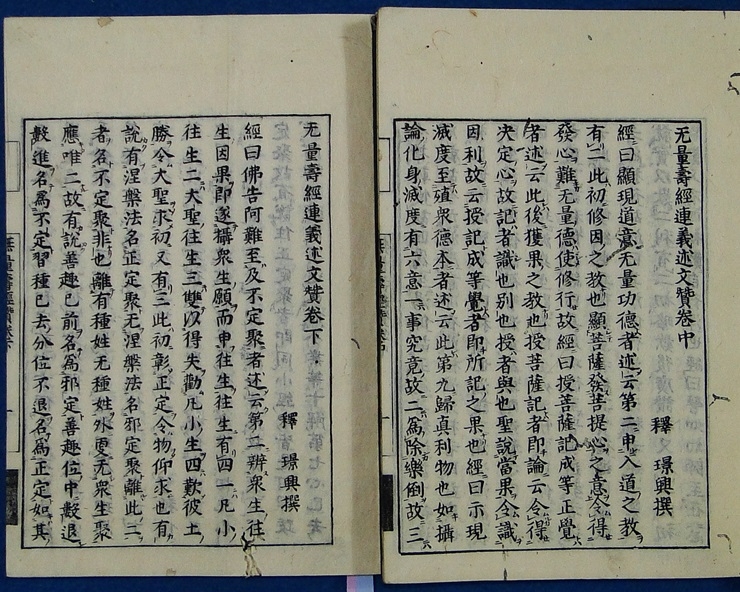 无量壽經連義述文贊卷中
釋 璟興撰
經曰顯現道意无量功德者述云第二申入道之教
有二此初修因之教也顯菩薩發菩提心之意令得
發心難无量德使修行故經曰授菩薩記成等正覺
者述云此後獲果之教也授菩薩記者即論云令得
决定心故記者識也別也授者與也聖說當果令識
因利故云授記成等覺者即所記之果也經曰示現
滅度至殖衆德本者述云此第九歸真利物也如攝
論化身滅度有六意一事究竟故二爲除樂倒故三
无量壽經連義述文贊卷下
釋 璟興撰
經曰佛告阿難至及不定聚者述云第二辨衆生往
生因果即遂攝衆生願而申往生往生有四一凡小
往生二大聖往生三雙以得失勸凡小生四歎彼土
勝令大聖求初又有三此初彰正定令物仰求也有
說有涅槃法名正定聚无涅槃法名邪定聚離此二
者名不定聚非也離有種姓无種姓外更无衆生聚
應唯二故有說善趣已前名爲邪定善趣位中數退
數進名爲不定習種已去分位不退名爲正定如其